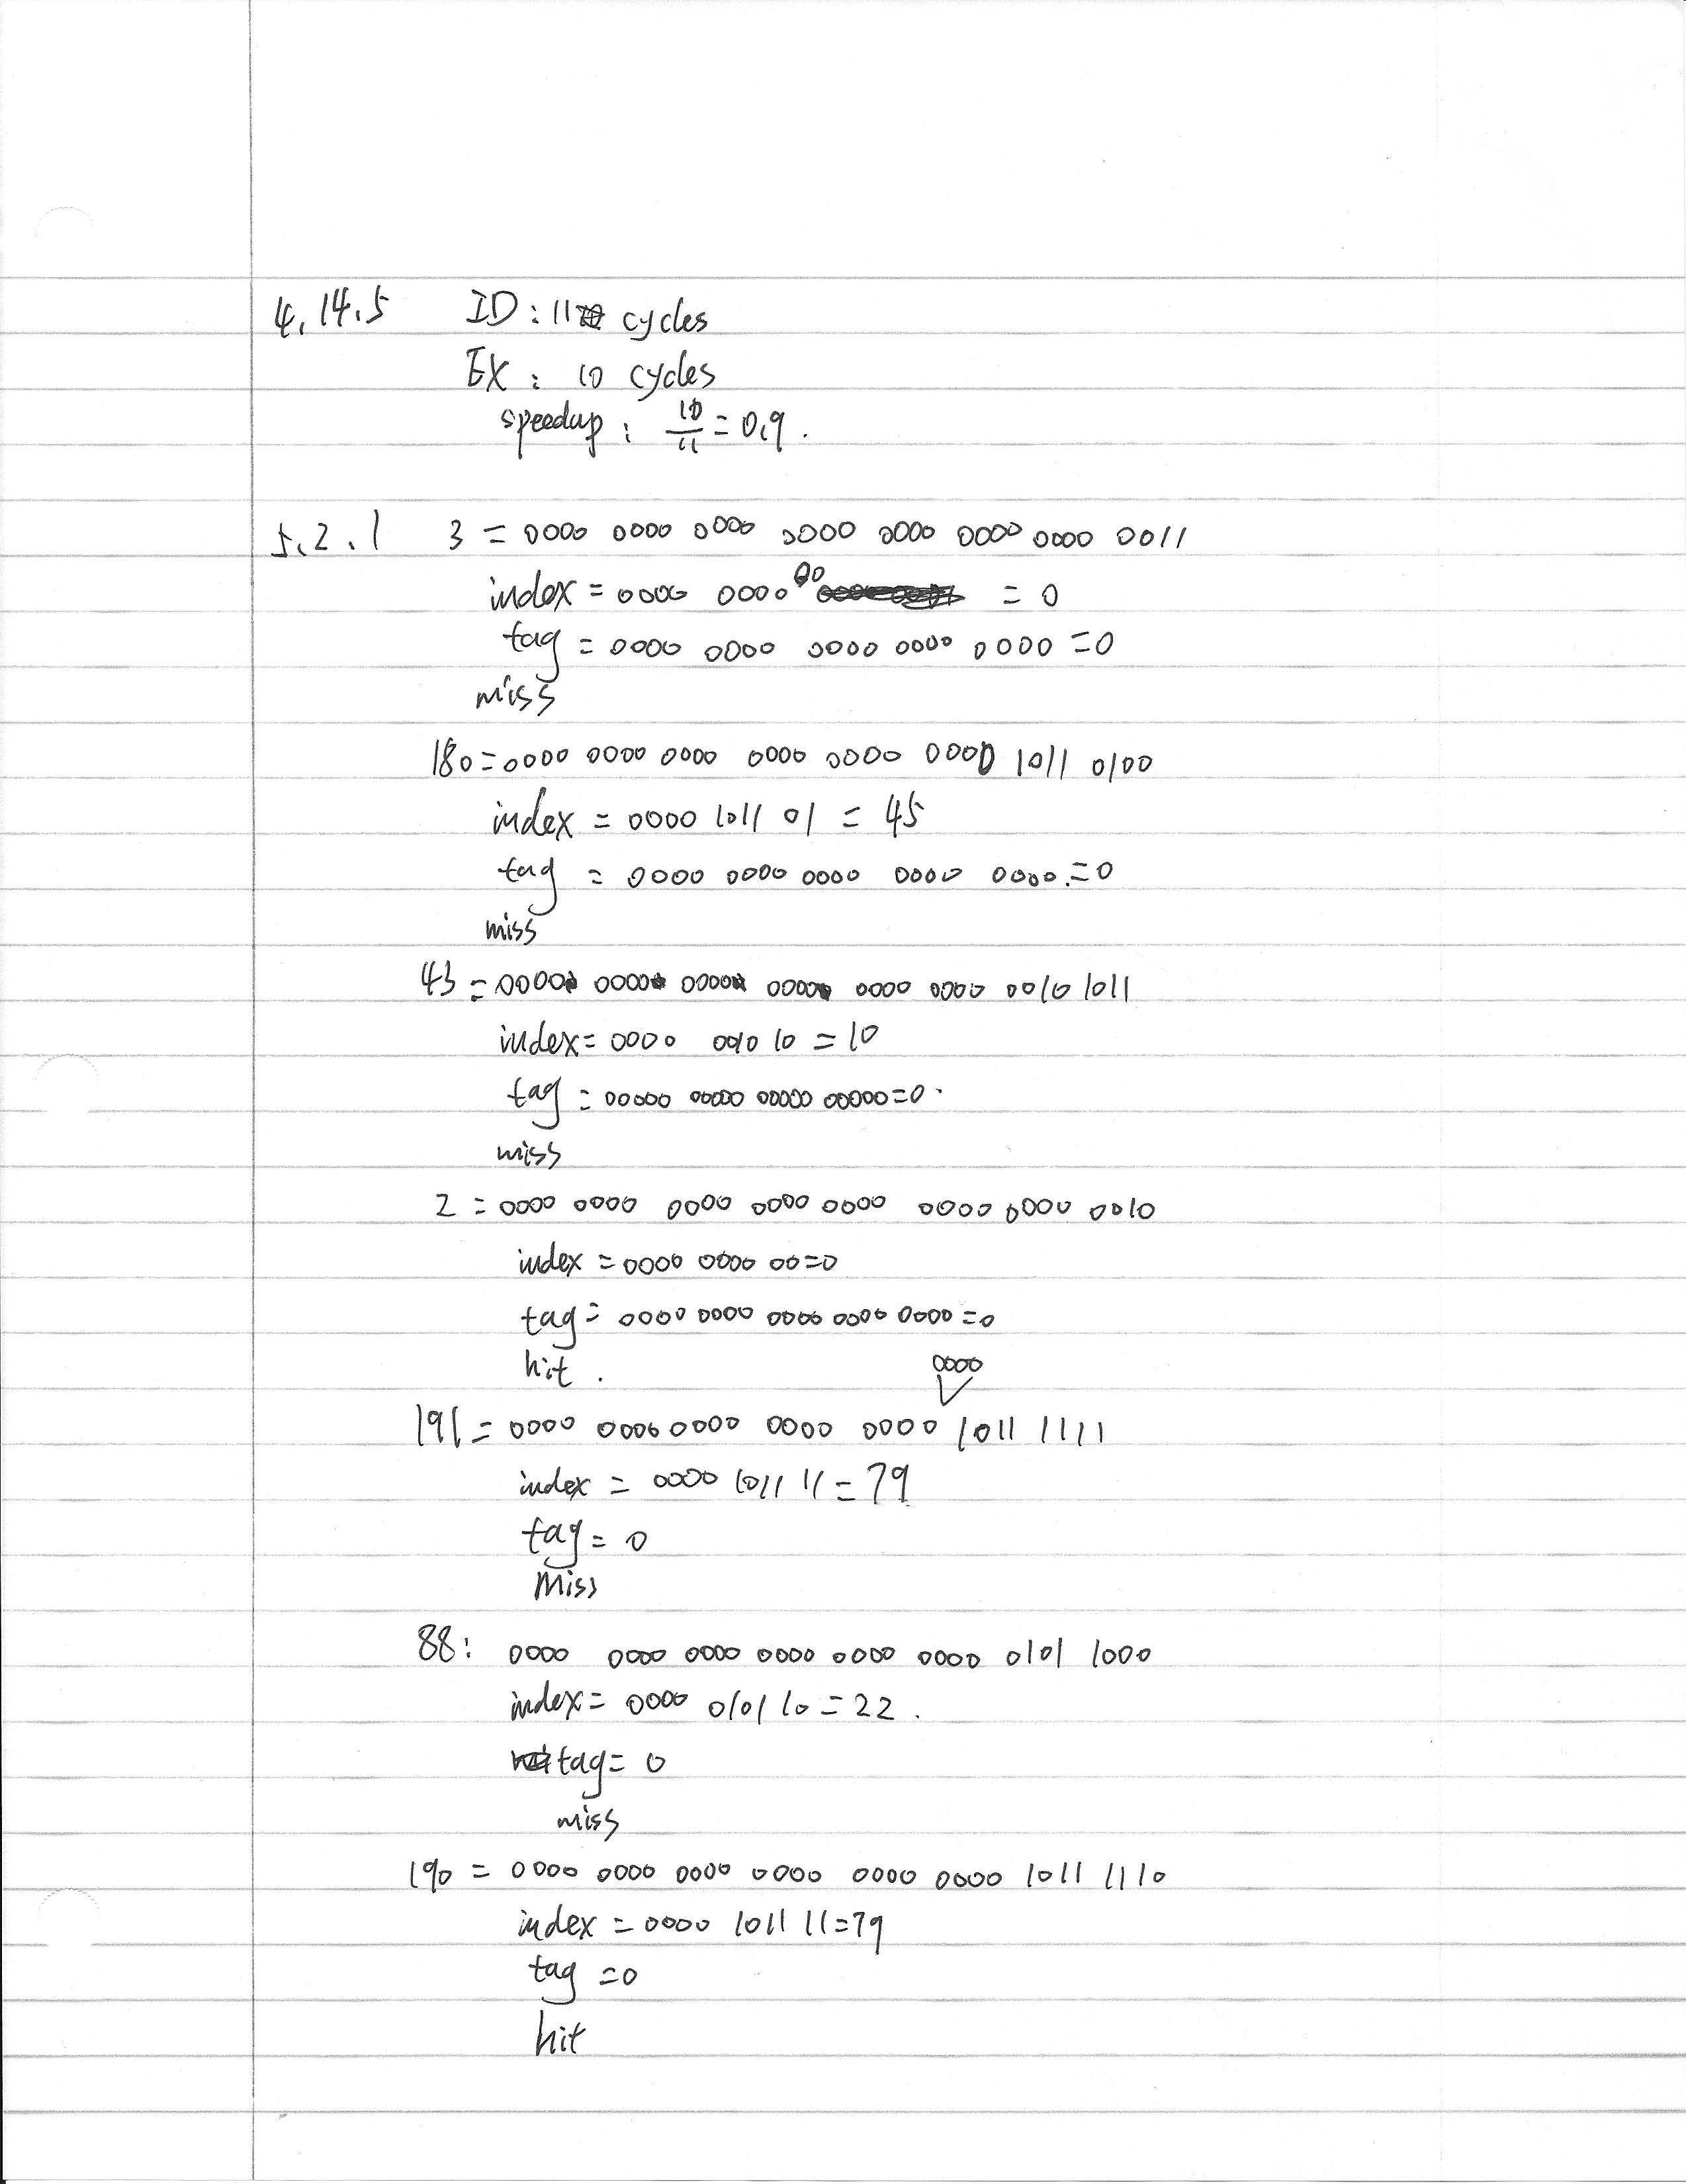 4.14.5 ID: 11 cycles
EX: 10 cycles
speedup: 10/11 = 0.9.
5.2.1 3 = 0000 0000 0000 0000 0000 0000 0000 0011
index = 0000 0000 00 = 0
tag = 0000 0000 0000 0000 0000 = 0
miss
180 = 0000 0000 0000 0000 0000 0000 1011 0100
index = 0000 1011 01 = 45
tag = 0000 0000 0000 0000 0000. = 0
miss
43 = 0000 0000 0000 0000 0000 0000 0010 1011
index = 0000 0010 10 = 10
tag = 00000 00000 00000 00000 = 0.
miss
2 = 0000 0000 0000 0000 0000 0000 0000 0010
index = 0000 0000 00 = 0
tag = 0000 0000 0000 0000 0000 = 0
hit.
191 = 0000 0000 0000 0000 0000 0000 1011 1111
index = 0000 1011 11 = 79
tag = 0
Miss
88: 0000 0000 0000 0000 0000 0000 0101 1000
index = 0000 0101 10 = 22.
tag = 0
miss
190 = 0000 0000 0000 0000 0000 0000 1011 1110
index = 0000 1011 11 = 79
tag = 0
hit